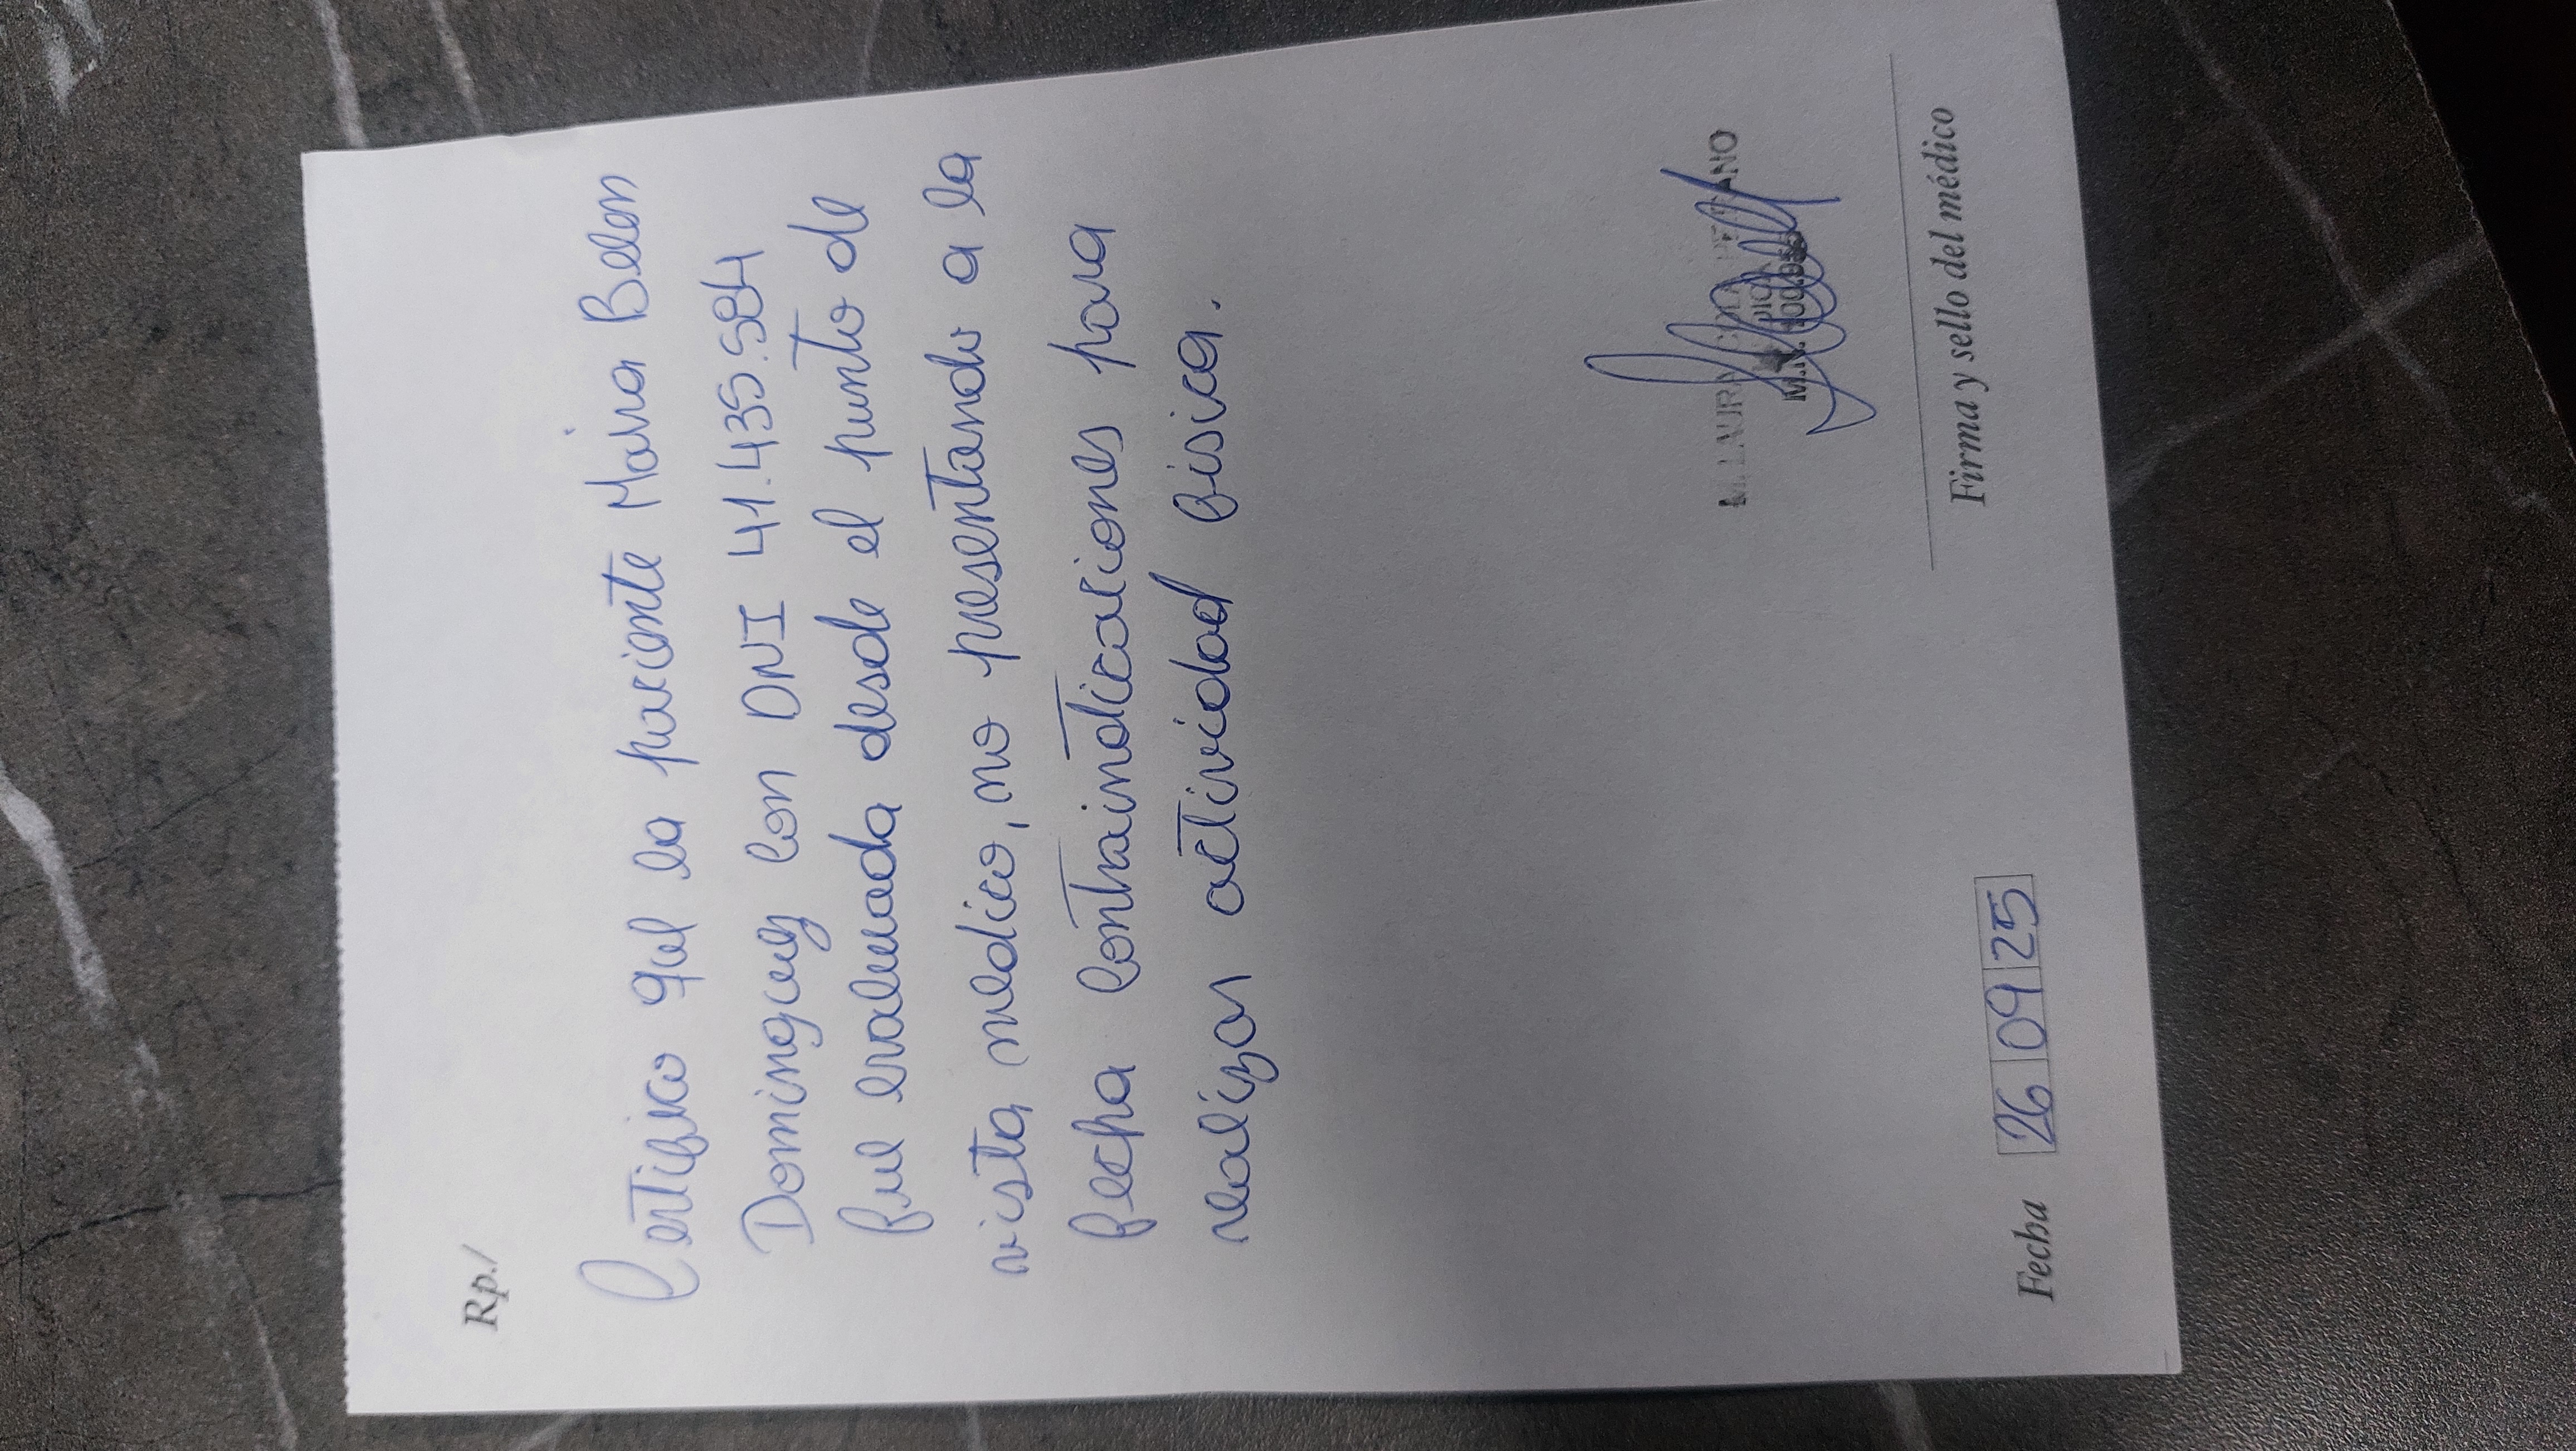 Rp./
Certifico que la paciente Maira Belen
Dominguez con DNI 41.435.584
fue evaluada desde el punto de
vista medico, no presentando a la
fecha contraindicaciones para
realizar actividad fisica.
M. LAURA
M.N.
Firma y sello del médico
Fecha 26 09 25